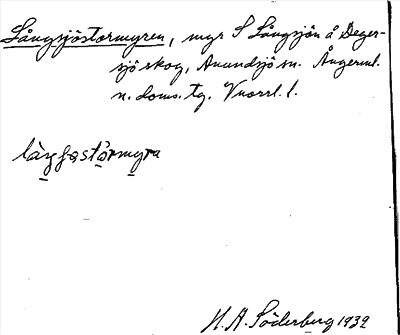 Långsjöstormyren, myr S Långsjön å Deger-
sjö skog, Anundsjö sn. Ångerml.
n. doms. tg. Vnorrl. l.
H. A. Söderberg 1932